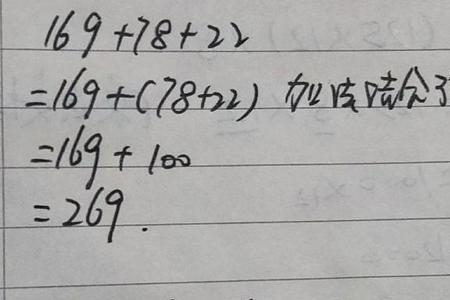 169+78+22
=169+(78+22) 加法
=169+100
=269.